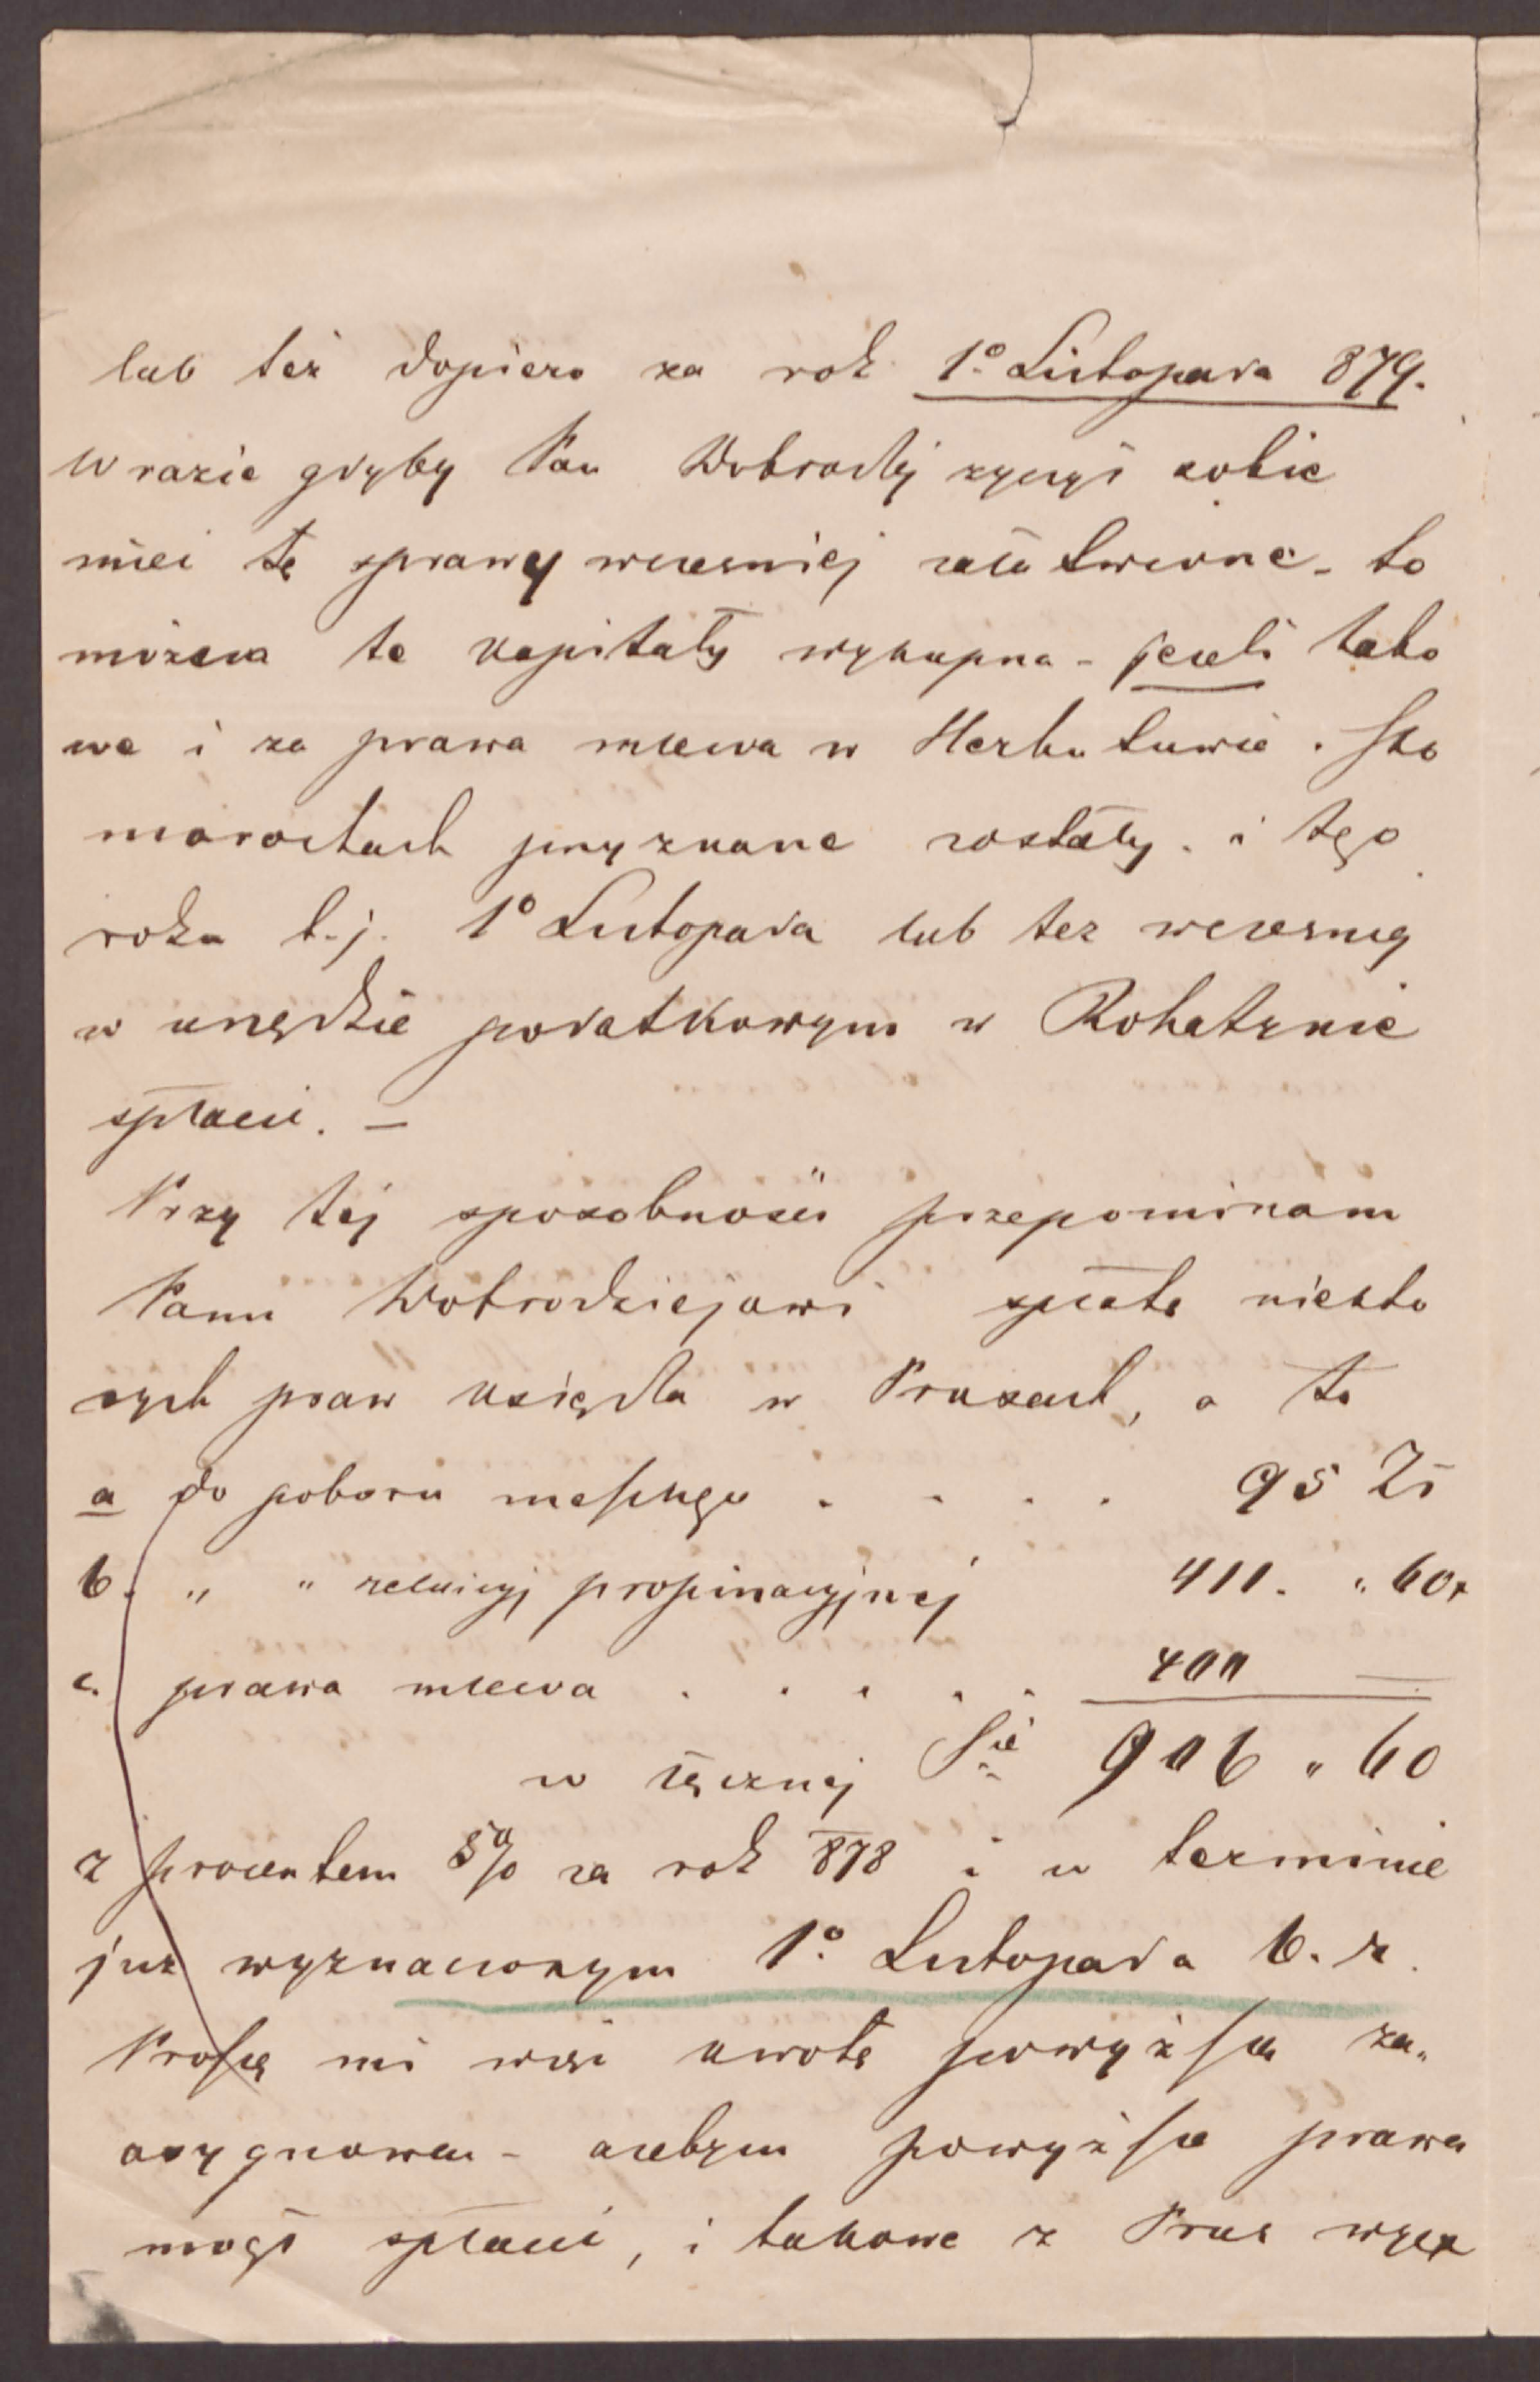 lub też dopiero za rok 1º Listopada 879.
W razie gdyby Pan Dobrodzj życzył sobie
mieć tę sprawę wcześniej załatwioną - to
możesz te kapitały wykupna - jeżeli tako
we i za prawa mlewa w Herbutowie. Sko
morochach przyznane zostały. i tego
roku t.j. 1º Listopada lub też wcześniej
w urzędzie podatkowym w Rohatynie
spłacić. —
Przy tej sposobności przypominam
Panu Dobrodziejowi spłatę niektó
rych praw księdza w Prusach, a to
a do poboru mesznego . . . . 95 Zł
b. " " relucyj propinacyjnej 411. " 60x
c. prawa mlewa . . . . . 400 —
w łącznej Sie 906 " 60
z procentem 5% za rok 878 i w terminie
już wyznaczonym 1º Listopada b. r.
Proszę mi więc kwotę powyższą za„
asygnować - ażebym powyższe prawa
mógł spłacić, i takowe z Prus